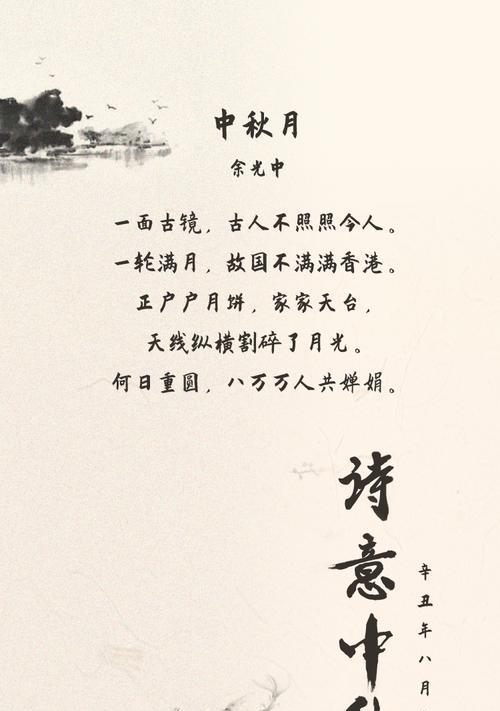 中秋月
余光中
一面古镜，古人不照照今人。
一轮满月，故国不满满香港。
正户户月饼，家家天台，
天线纵横割碎了月光。
何日重圆，八万万人共婵娟。
诗意中
辛丑年八月